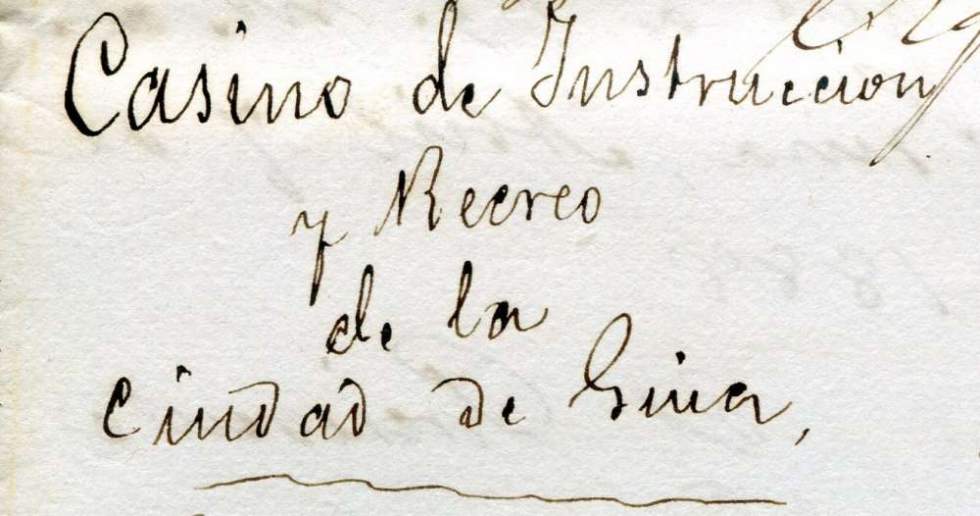 Casino de Instruccion
y Recreo
de la
Ciudad de Guia,